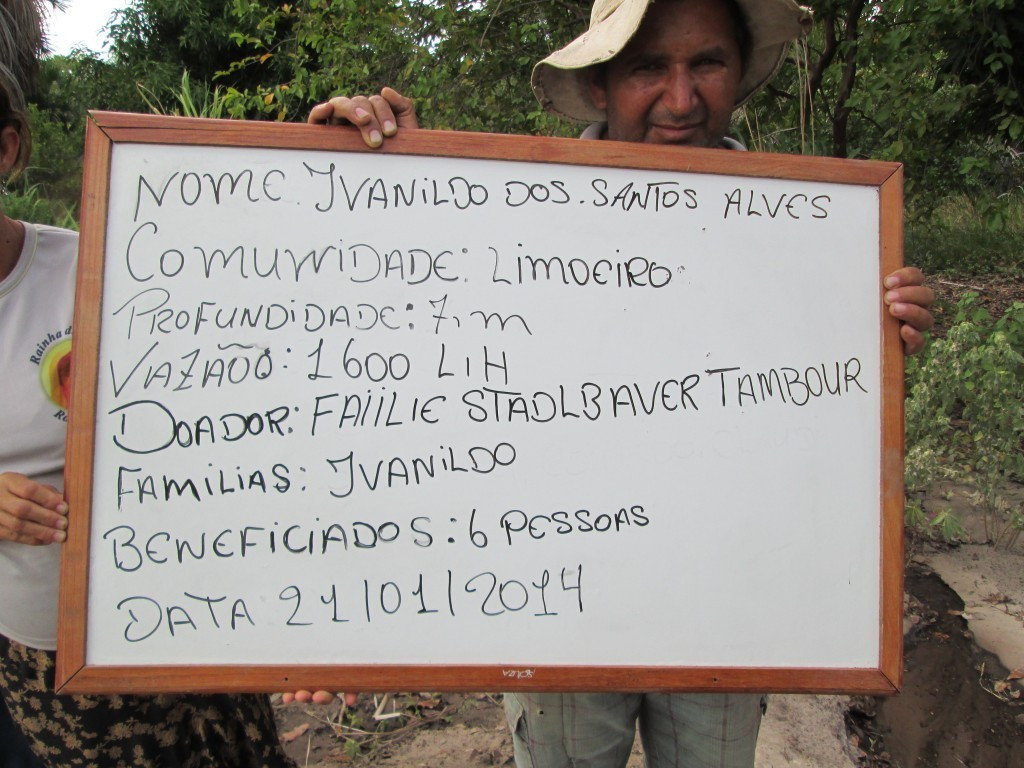 NOME JVANILDO DOS. SANTOS ALVES
COMUNIDADE: LIMOEIRO
PROFUNDIDADE: 7, m
VAZÃOO: 1600 LIH
DOADOR: FAIILIE STADLBAVER TAMBOUR
FAMILIAS: JVANILDO
BENEFICIADOS: 6 PESSOAS
DATA 21/01/2014
Rainha d